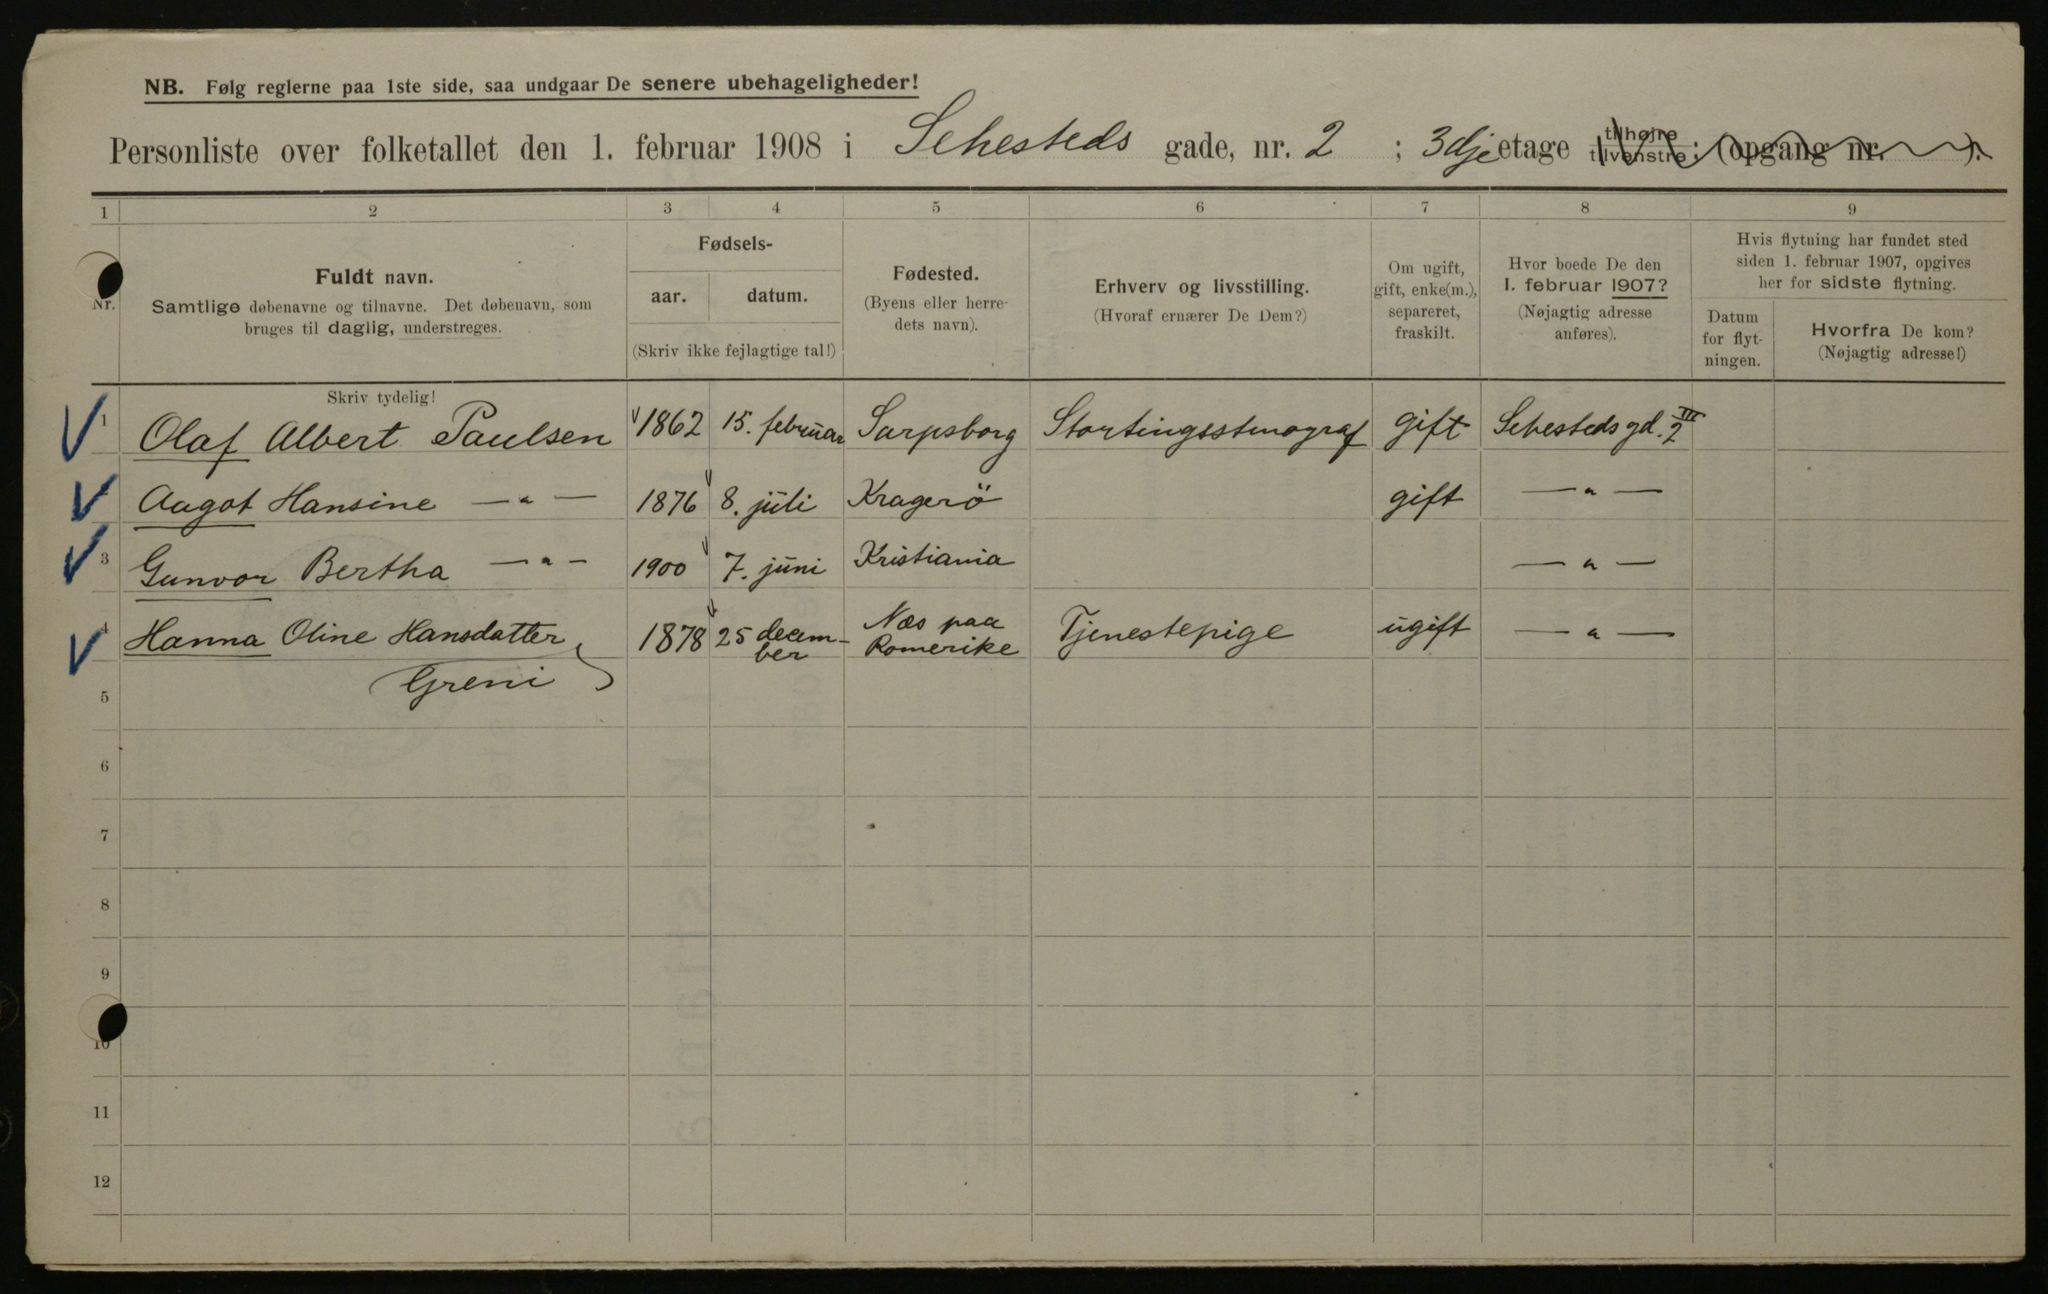 NB. Følg reglerne paa 1ste side, saa undgaar De senere ubehageligheder!
Personliste over folketallet den 1. februar 1908 i Sehesteds gade, nr. 2 ; 3dje etage tilhøjre tilvenstre ; (opgang nr. ).
1 2 3 4 5 6 7 8 9
Nr.
Fuldt navn.
Samtlige døbenavne og tilnavne. Det døbenavn, som
bruges til daglig, understreges.
Skriv tydelig!
Fødsels-
aar. datum.
(Skriv ikke fejlagtige tal!)
Fødested.
(Byens eller herre-
dets navn).
Erhverv og livsstilling.
(Hvoraf ernærer De Dem?)
Om ugift,
gift, enke(m.),
separeret,
fraskilt.
Hvor boede De den
1. februar 1907?
(Nøjagtig adresse
anføres).
Hvis flytning har fundet sted
siden 1. februar 1907, opgives
her for sidste flytning.
Datum
for flyt-
ningen.
Hvorfra De kom?
(Nøjagtig adresse!)
1 Olaf Albert Paulsen 1862 15. februar Sarpsborg Stortingsstenograf gift Sehesteds gd. 2 III
Aagot Hansine — " — 1876 8. juli Kragerö gift — " —
3 Gunvor Bertha — " — 1900 7. juni Kristiania — " —
4 Hanna Oline Hansdatter 1878 25 decem-
ber Næs paa
Romerike Tjenestepige ugift — " —
5 Greni
6
7
8
9
10
11
12